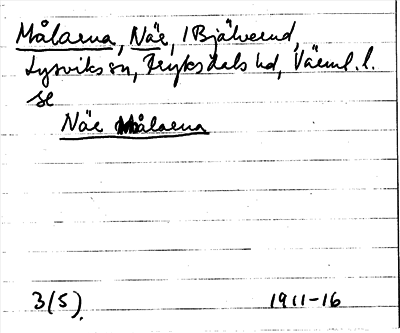 Målarna, Näe, 1 Bjälverud,
Lysviks sn, Fryksdals hd, Värml. l.
se
Näe Målarna
3(5).
1911-16